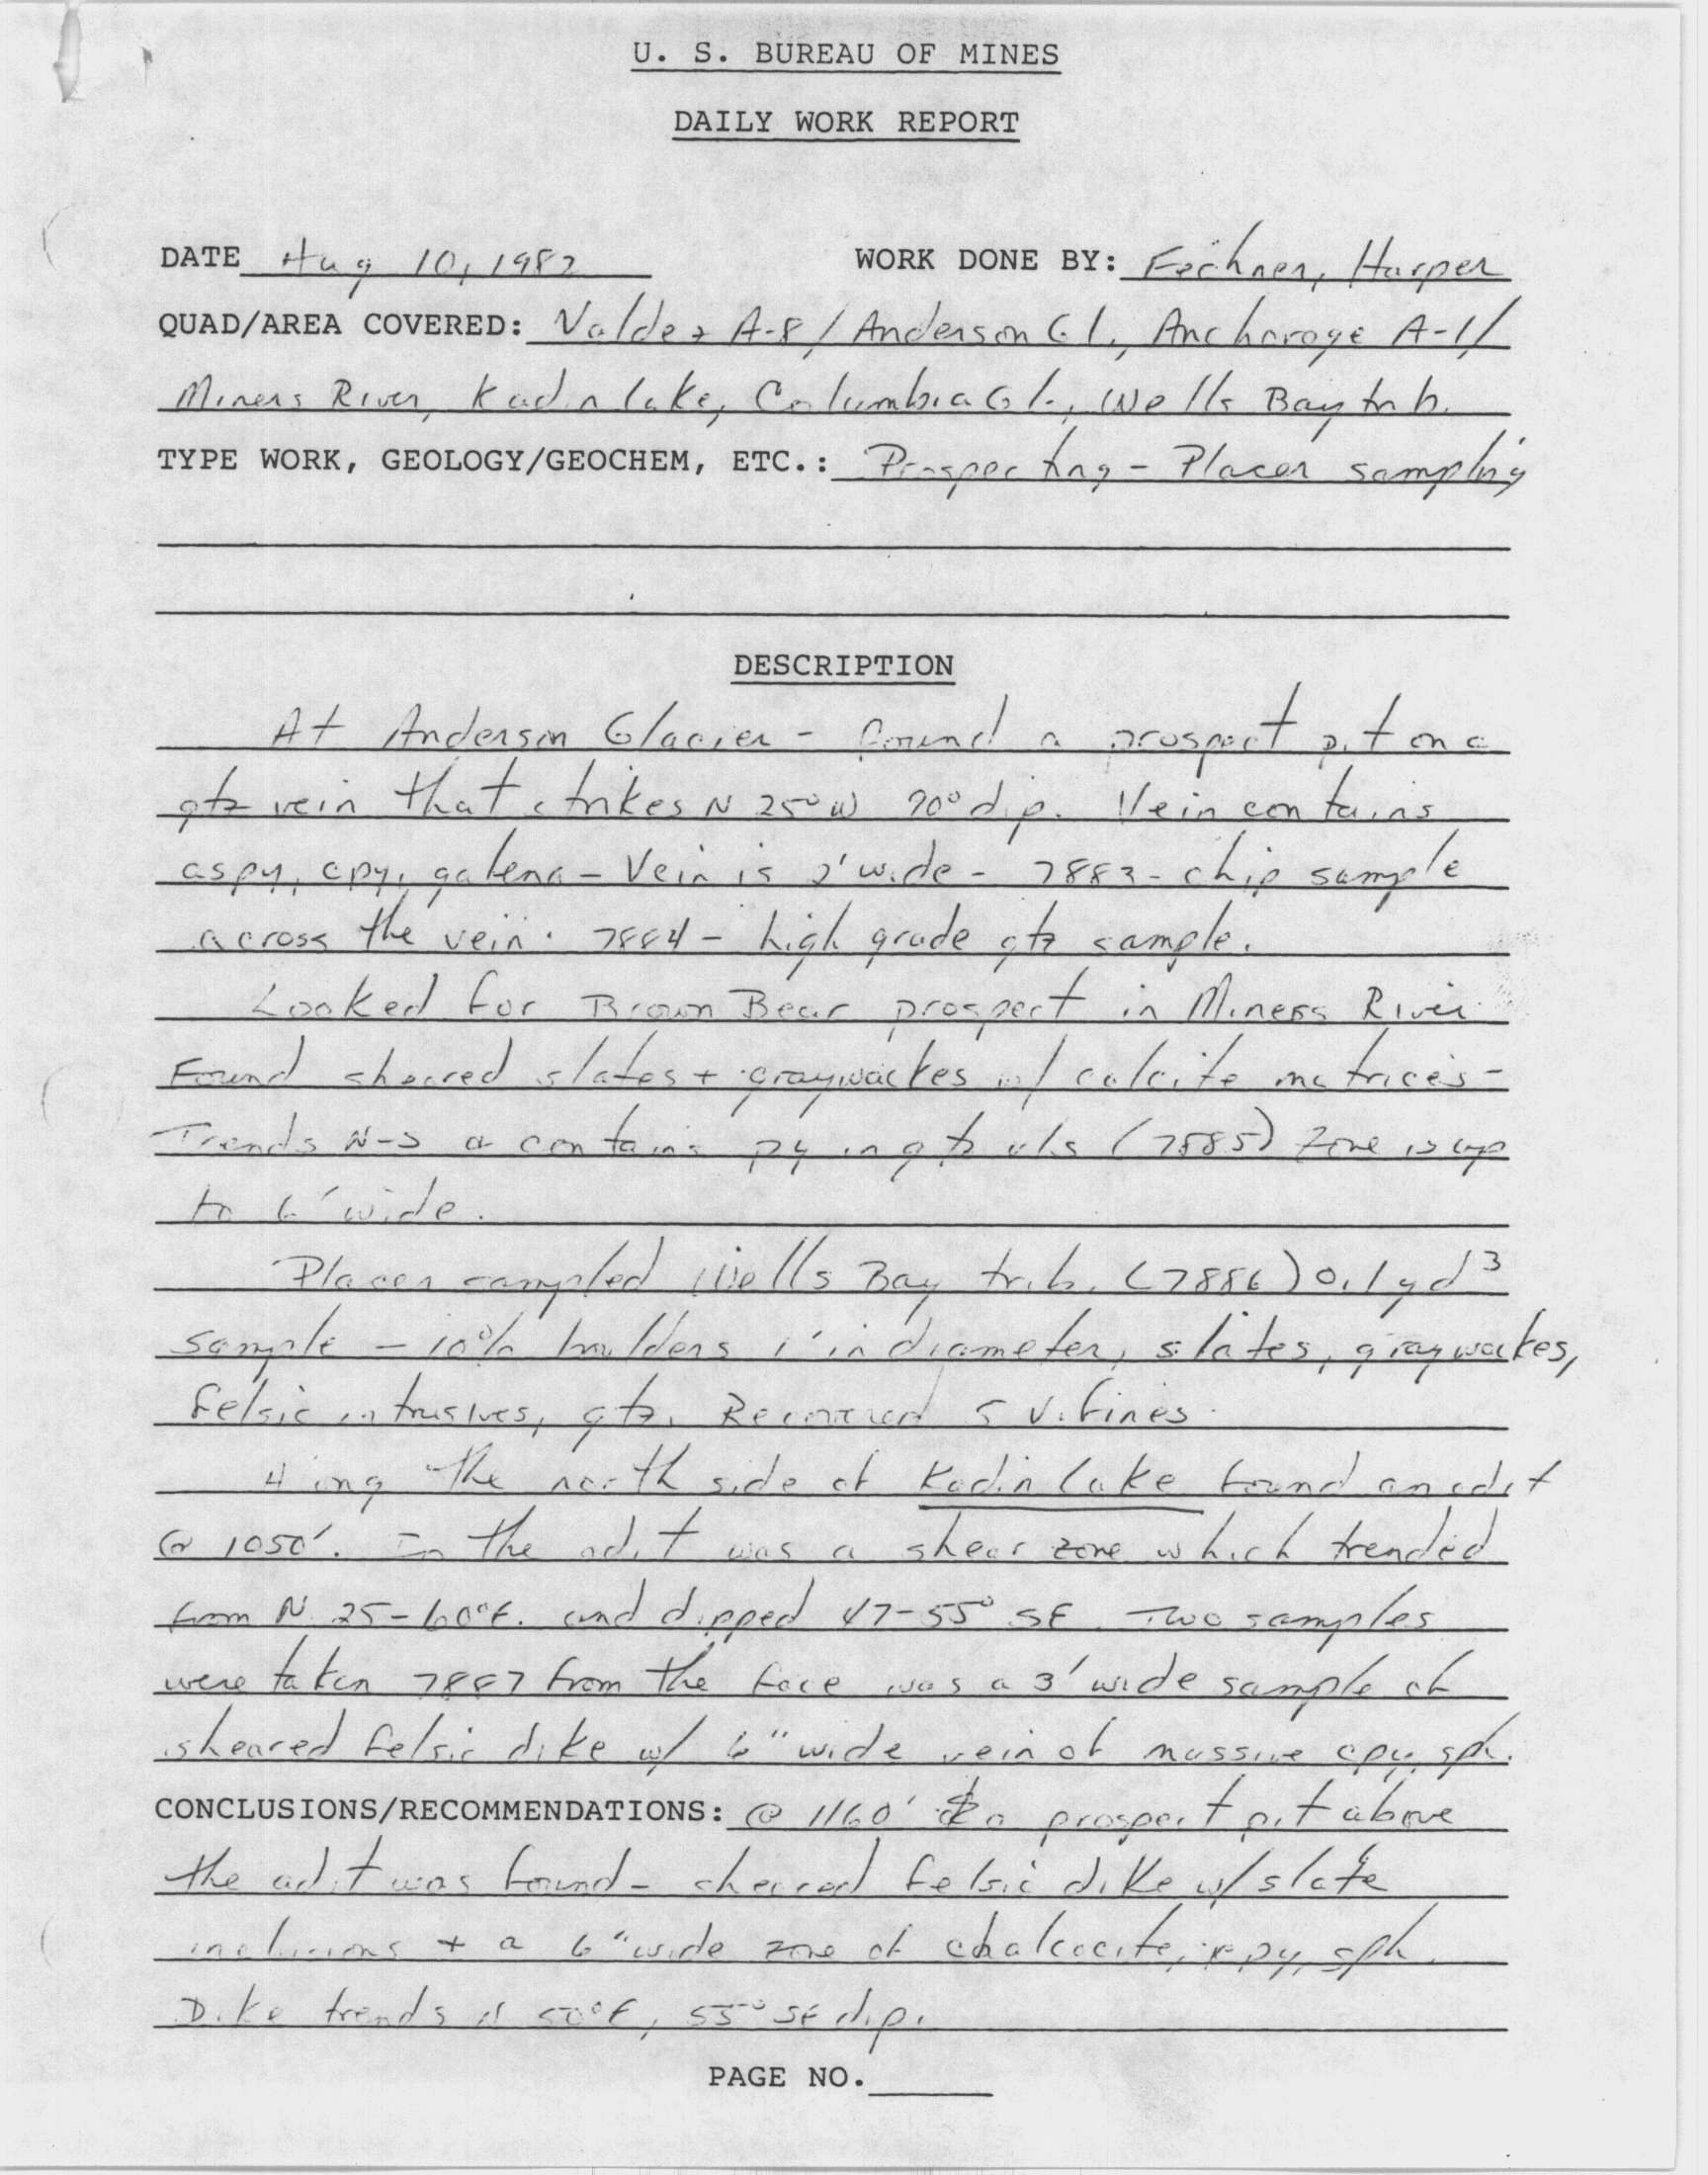 U. S. BUREAU OF MINES
DAILY WORK REPORT
DATE Aug 10, 1982 WORK DONE BY: Fechner, Harper
QUAD/AREA COVERED: Valdez A-8/Anderson Gl., Anchorage A-1/
Miners River, Kadin lake, Columbia Gl., Wells Bay trib.
TYPE WORK, GEOLOGY/GEOCHEM, ETC.: Prospecting - Placer sampling
DESCRIPTION
At Anderson Glacier - found a prospect pit on a
qtz vein that strikes N 25° W 90° dip. Vein contains
aspy, cpy, galena - Vein is 2' wide - 7883 - chip sample
across the vein. 7884 - high grade qtz sample.
Looked for Brown Bear prospect in Miners River
Found sheared slates + graywackes w/ calcite matrices -
Trends N-S & contains py in qtz vls (7885) Zone is up
to 6' wide.
Placer sampled Wells Bay trib. (7886) 0.1 yd³
sample - 10% boulders 1' in diameter, slates, graywackes,
felsic intrusives, qtz. Recovered 5 v. fines.
Along the north side of Kadin lake found an adit
@ 1050'. In the adit was a shear zone which trended
from N 25-60°E. and dipped 47-55° SE. Two samples
were taken 7887 from the face was a 3' wide sample of
sheared felsic dike w/ 6" wide vein of massive cpy, sph.
CONCLUSIONS/RECOMMENDATIONS: @ 1160' a prospect pit above
the adit was found - sheared felsic dike w/ slate
inclusions + a 6" wide zone of chalcocite, cpy, sph.
Dike trends N 50°E, 55° SE dip.
PAGE NO.